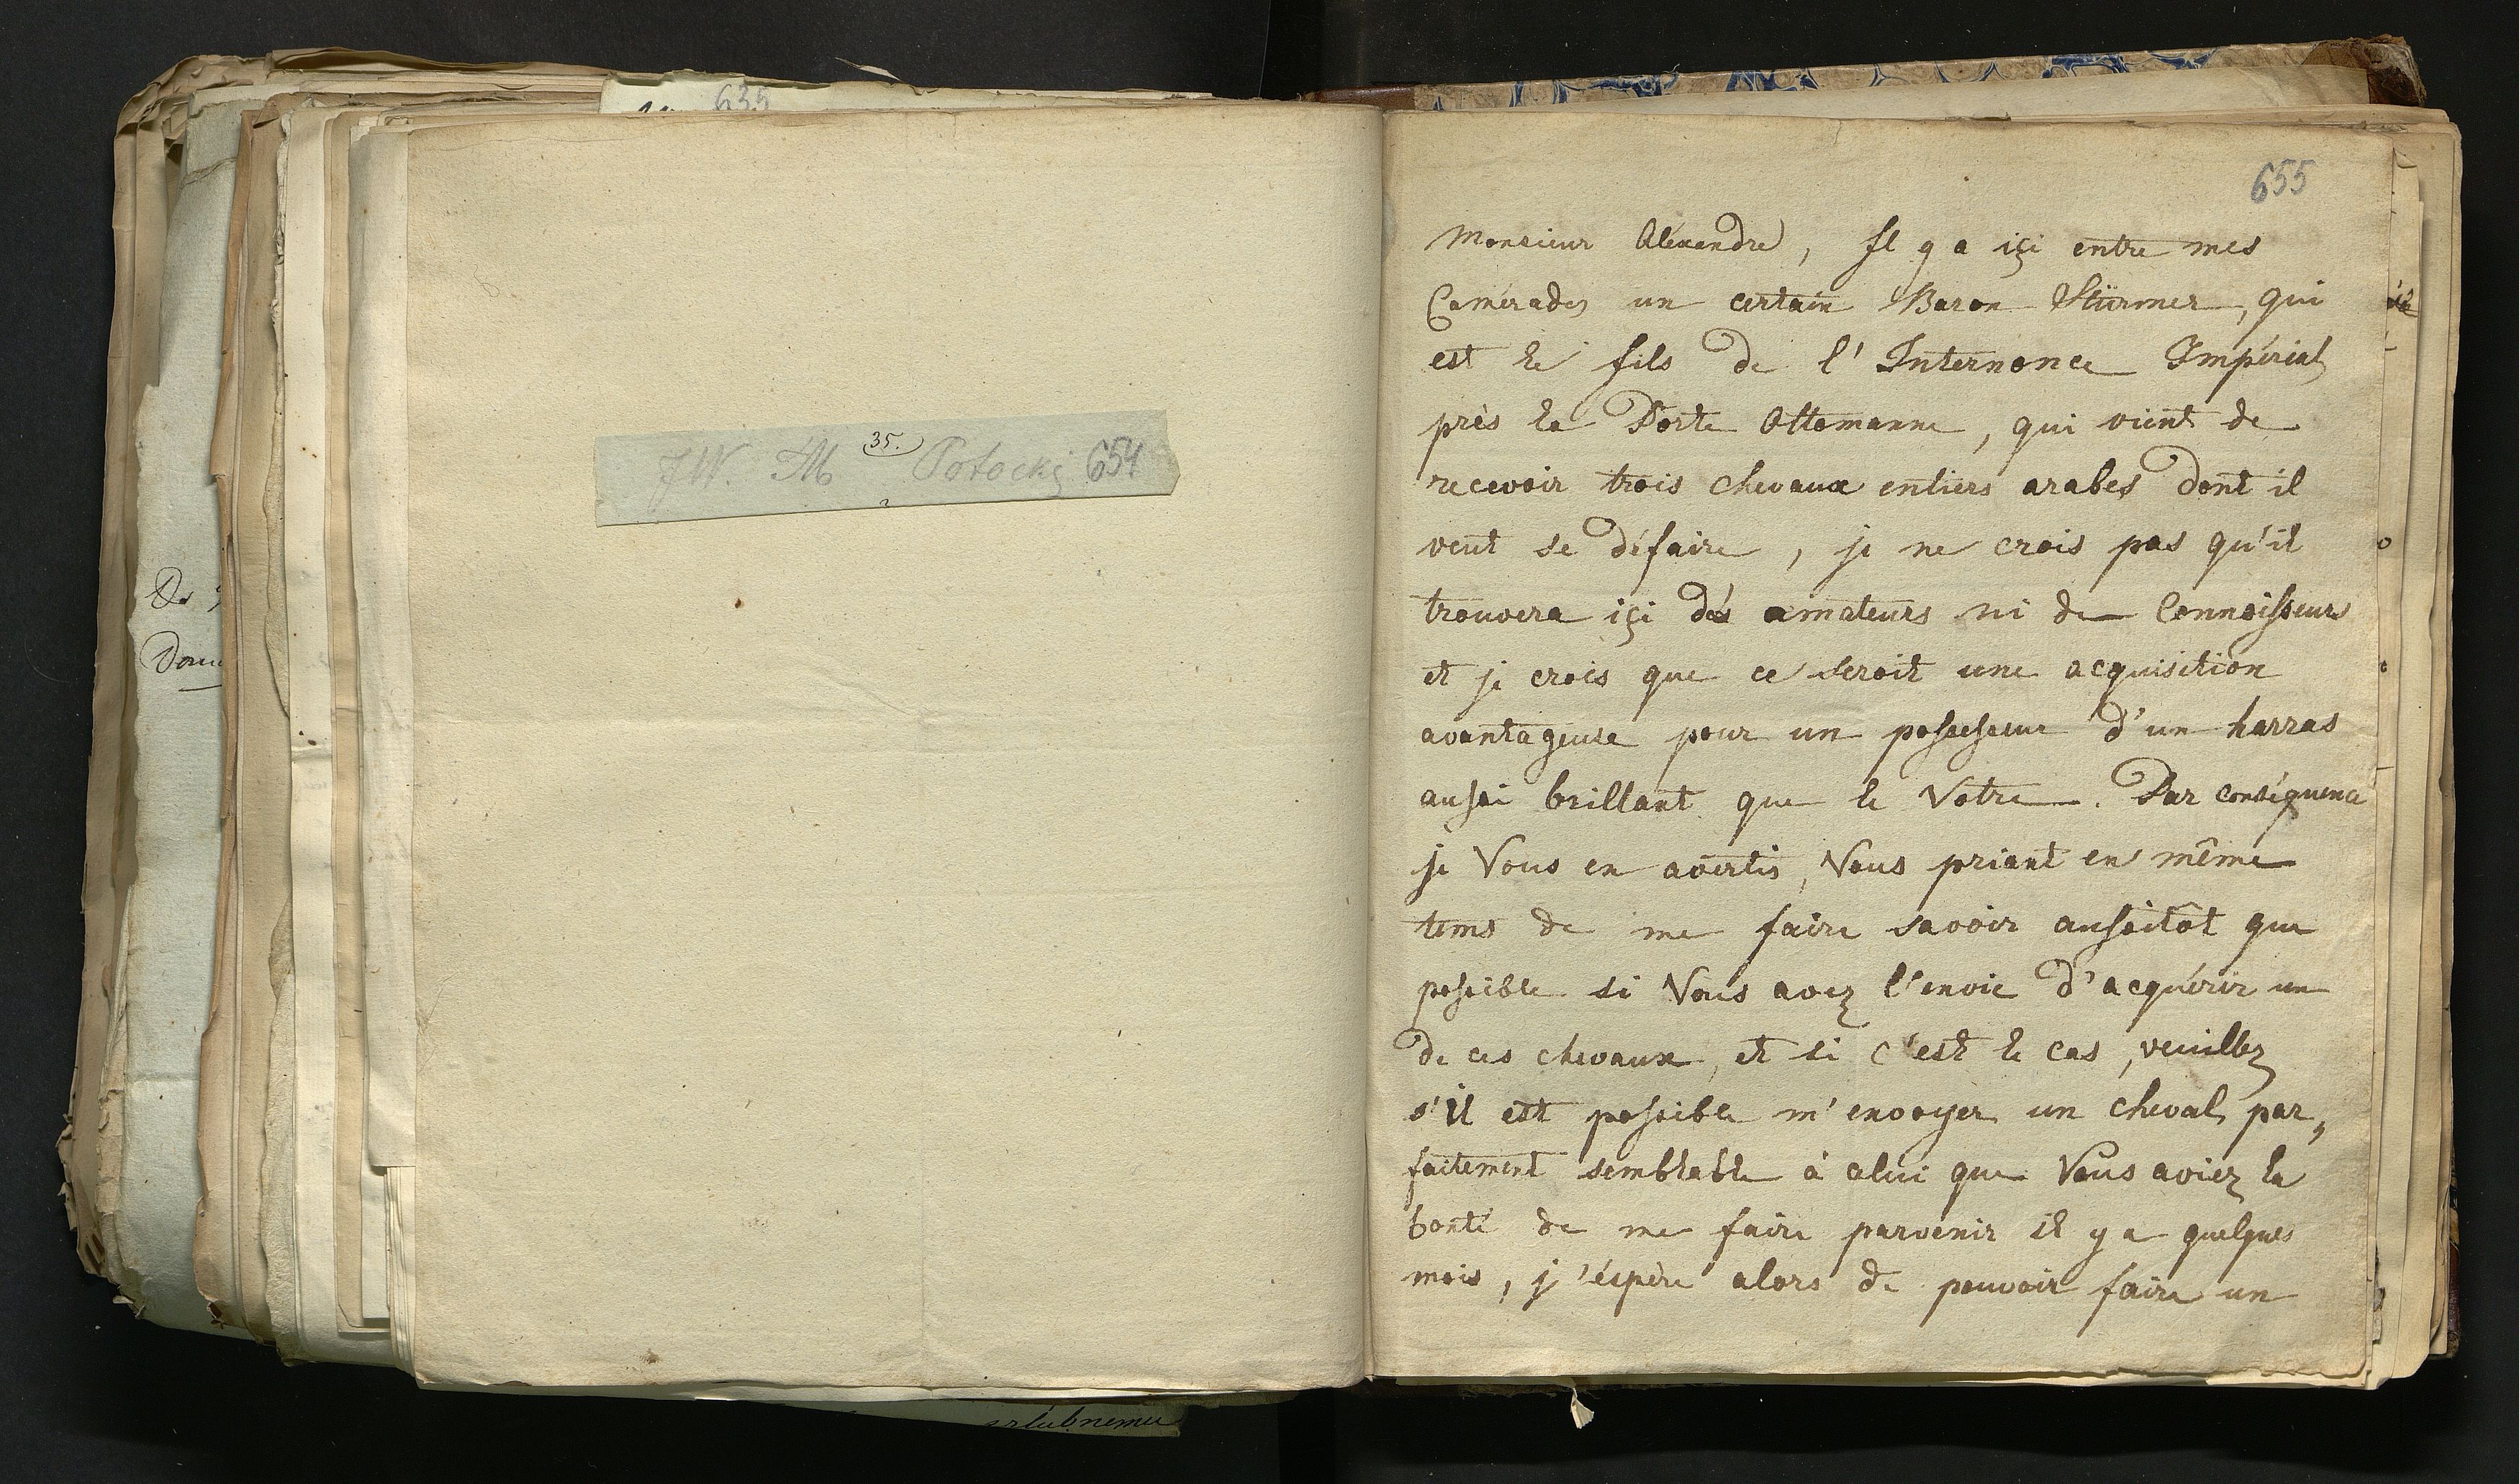 635
35.
JW. M Potocki 654
655
Monsieur Aléxandre, Il y a içi entre mes
Camérades un certain Baron Stürmer, qui
est le fils de l'Internonce Impérial
près la Porte Ottomanne, qui vient de
recevoir trois chevaux entiers arabes dont il
veut se défaire, je ne crois pas qu'il
trouvera içi dés amateurs ni de Connoisseurs
et je crois que ce seroit une acquisition
avantageuse pour un possesseur d'un harras
aussi brillant que le Votre. Par conséquence
je Vous en avertis, Vous priant en même
tems de me faire savoir aussitôt que
possible si Vous avez l'envie d'acquérir un
de ces chevaux, et si c'est le cas, veuillez
s'il est possible m'envoyer un cheval par„
faitement semblable à celui que Vous aviez la
bonté de me faire parvenir il y a quelques
mois, j'éspère alors de pouvoir faire un